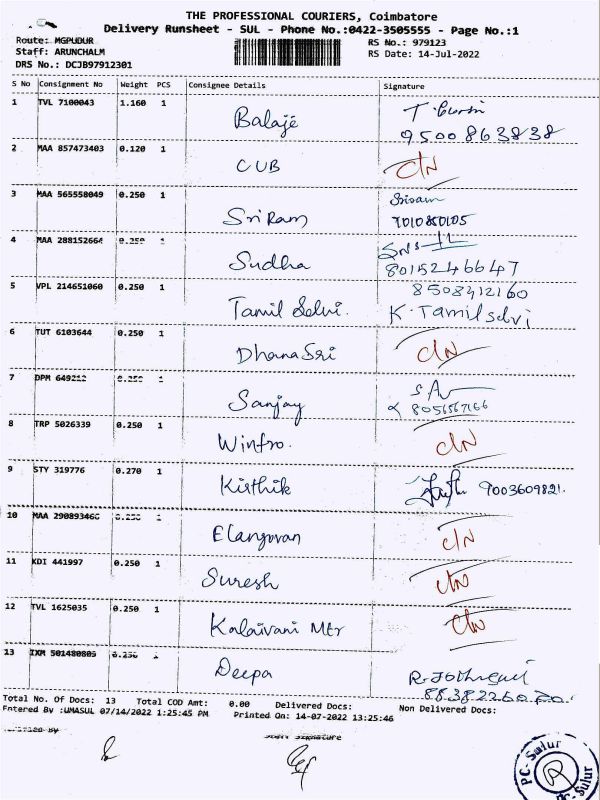 THE PROFESSIONAL COURIERS, Coimbatore
Delivery Runsheet - SUL - Phone No.:0422-3505555 - Page No.:1
Route: MGPUDUR RS No.: 979123
Staff: ARUNCHALM RS Date: 14-Jul-2022
DRS No.: DCJB97912301
S No Consignment No Weight PCS Consignee Details Signature
1 TVL 7100043 1.160 1 Balaje
9500863838
2 MAA 857473403 0.120 1 CUB C/N
3 MAA 565558049 0.250 1 SriRam Sriram
7010850105
4 MAA 288152664 0.250 1 Sudha
8015246647
5 VPL 214651060 0.250 1 Tamil Selvi. 8508412160
K. Tamilselvi
6 TUT 6103644 0.250 1 DhanaSri C/N
7 DPM 649212 0.250 1 Sanjay
8056567166
8 TRP 5026339 0.250 1 Winfro. C/N
9 STY 319776 0.270 1 Kirthik 9003609821.
10 MAA 290893466 0.250 1 Elangovan C/N
11 KDI 441997 0.250 1 Suresh C/N
12 TVL 1625035 0.250 1 Kalaivani Mtr C/N
13 IXM 501480809 0.250 1 Deepa
Total No. Of Docs: 13 Total COD Amt: 0.00 Delivered Docs: Non Delivered Docs:
Entered By :UMASUL 07/14/2022 1:25:45 PM Printed On: 14-07-2022 13:25:46
Staff Signature
PC-Sulur
PC-Sulur